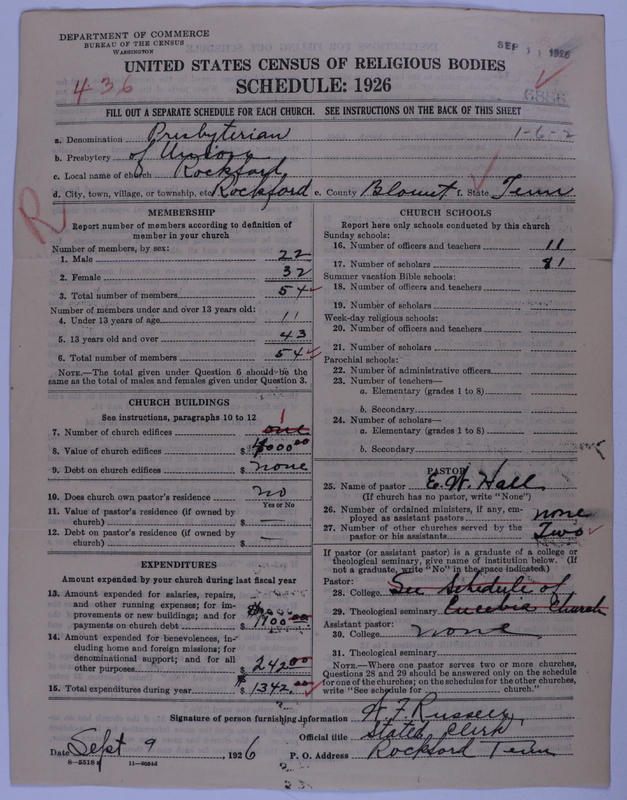 DEPARTMENT OF COMMERCE
BUREAU OF THE CENSUS
WASHINGTON
SEP 11 1926
UNITED STATES CENSUS OF RELIGIOUS BODIES
SCHEDULE: 1926
436
FILL OUT A SEPARATE SCHEDULE FOR EACH CHURCH. SEE INSTRUCTIONS ON THE BACK OF THIS SHEET
a. Denomination Presbyterian 1-6-2
b. Presbytery of Union
c. Local name of church Rockford
d. City, town, village, or township, etc Rockford e. County Blount f. State Tenn
R
MEMBERSHIP
Report number of members according to definition of
member in your church
Number of members, by sex:
1. Male 22
2. Female 32
3. Total number of members 54
Number of members under and over 13 years old:
4. Under 13 years of age 11
5. 13 years old and over 43
6. Total number of members 54
NOTE.—The total given under Question 6 should be the
same as the total of males and females given under Question 3.
CHURCH BUILDINGS
See instructions, paragraphs 10 to 12
7. Number of church edifices one 1
8. Value of church edifices $ 4000 00
9. Debt on church edifices $ none
10. Does church own pastor's residence no
Yes or No
11. Value of pastor's residence (if owned by
church) $ —
12. Debt on pastor's residence (if owned by
church) $ —
EXPENDITURES
Amount expended by your church during last fiscal year
13. Amount expended for salaries, repairs,
and other running expenses; for im-
provements or new buildings; and for
payments on church debt $ 1100 00
14. Amount expended for benevolences, in-
cluding home and foreign missions; for
denominational support; and for all
other purposes $ 242 00
15. Total expenditures during year $ 1342.00
CHURCH SCHOOLS
Report here only schools conducted by this church
Sunday schools:
16. Number of officers and teachers 11
17. Number of scholars 81
Summer vacation Bible schools:
18. Number of officers and teachers
19. Number of scholars
Week-day religious schools:
20. Number of officers and teachers
21. Number of scholars
Parochial schools:
22. Number of administrative officers
23. Number of teachers—
a. Elementary (grades 1 to 8)
b. Secondary
24. Number of scholars—
a. Elementary (grades 1 to 8)
b. Secondary
PASTOR
25. Name of pastor E. W. Hall
(If church has no pastor, write "None")
26. Number of ordained ministers, if any, em-
ployed as assistant pastors none
27. Number of other churches served by the
pastor or his assistants Two
If pastor (or assistant pastor) is a graduate of a college or
theological seminary, give name of institution below. (If
not a graduate, write "No" in the space indicated.)
Pastor:
28. College See Schedule of
29. Theological seminary Eucebia Church
Assistant pastor:
30. College none
31. Theological seminary
NOTE.—Where one pastor serves two or more churches,
Questions 28 and 29 should be answered only on the schedule
for one of the churches; on the schedules for the other churches,
write "See schedule for church."
Signature of person furnishing information W F Russell
Official title Stated Clerk
Date Sept 9, 1926 P. O. Address Rockford Tenn
8—5518 11—9034d